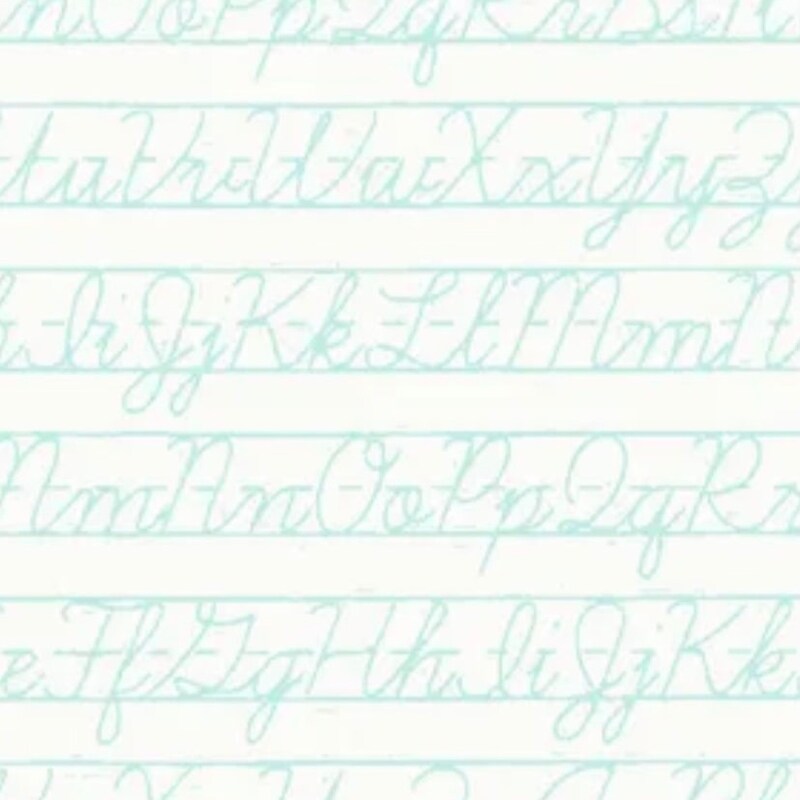 nOoPpQqRrSsTt
tuVvWwXxYyZz
hIiJjKkLlMmN
MmNnOoPpQqRr
eFfGgHhIiJjKk